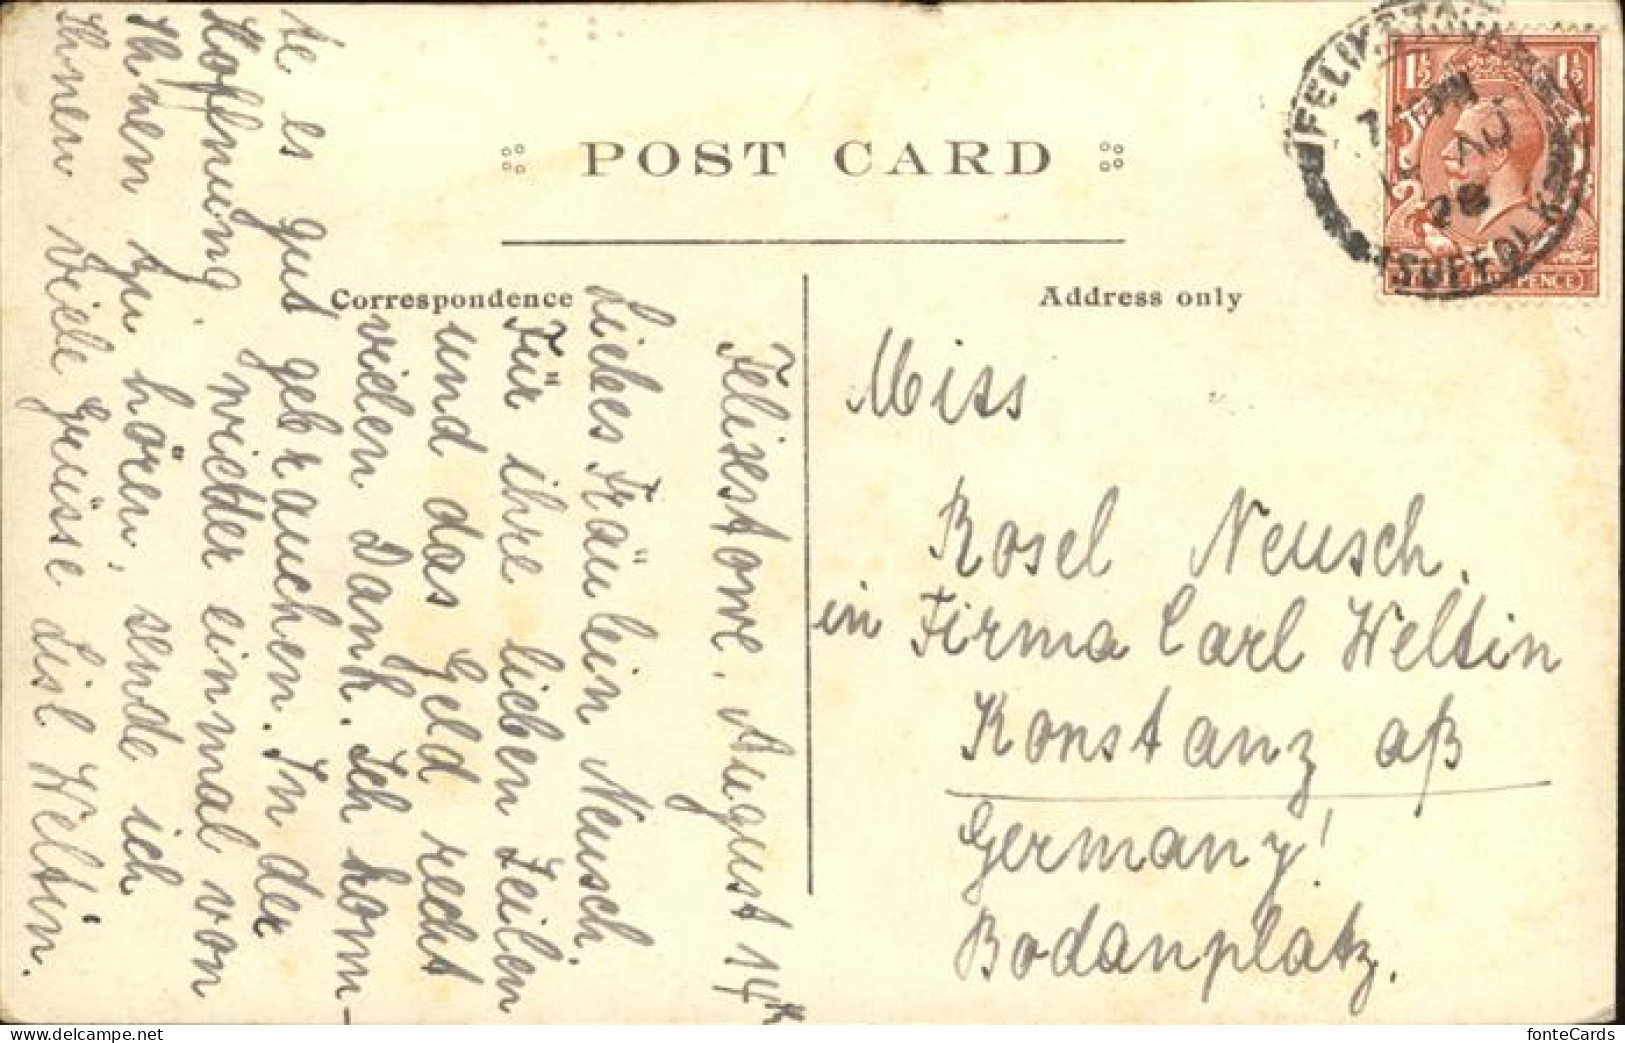 POST CARD
Correspondence
Address only
Felixstowe. August 14th
Liebes Fräulein Neusch.
Für ihre lieben Zeilen
und das Geld recht
vielen Dank. Ich konn-
te es gut gebrauchen. In der
Hoffnung wieder einmal von
Ihnen zu hören, sende ich
Ihnen viele Grüsse Lisl Weltin.
Miss
Rosel Neusch.
in Firma Carl Weltin
Konstanz aß
Germany!
Bodanplatz.
FELIXSTOWE
AU
28
SUFFOLK
1½ 1½
PENCE
delcampe.net
fonteCards